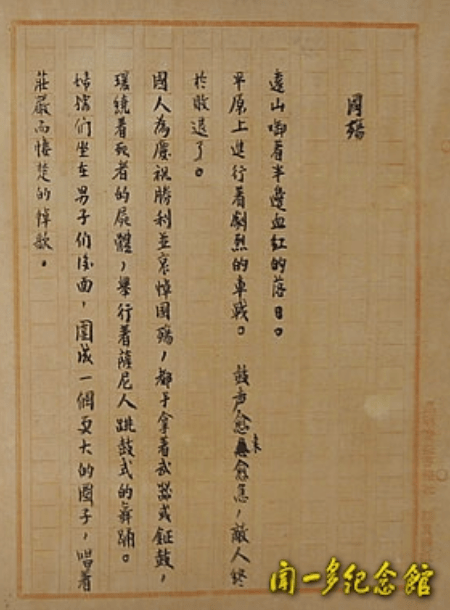 國殤
遠山啣着半邊血紅的落日。
平原上進行着劇烈的車戰。 鼓声愈來愈急，敵人終
於敗退了。
國人為慶祝勝利並哀悼國殤，都手拿着武器或鉦鼓，
環繞着死者的屍體，舉行着薩尼人跳鼓式的舞踊。
婦孺們坐在男子們後面，圍成一個更大的圈子，唱着
莊嚴而悽楚的悼歌。
聞一多纪念館